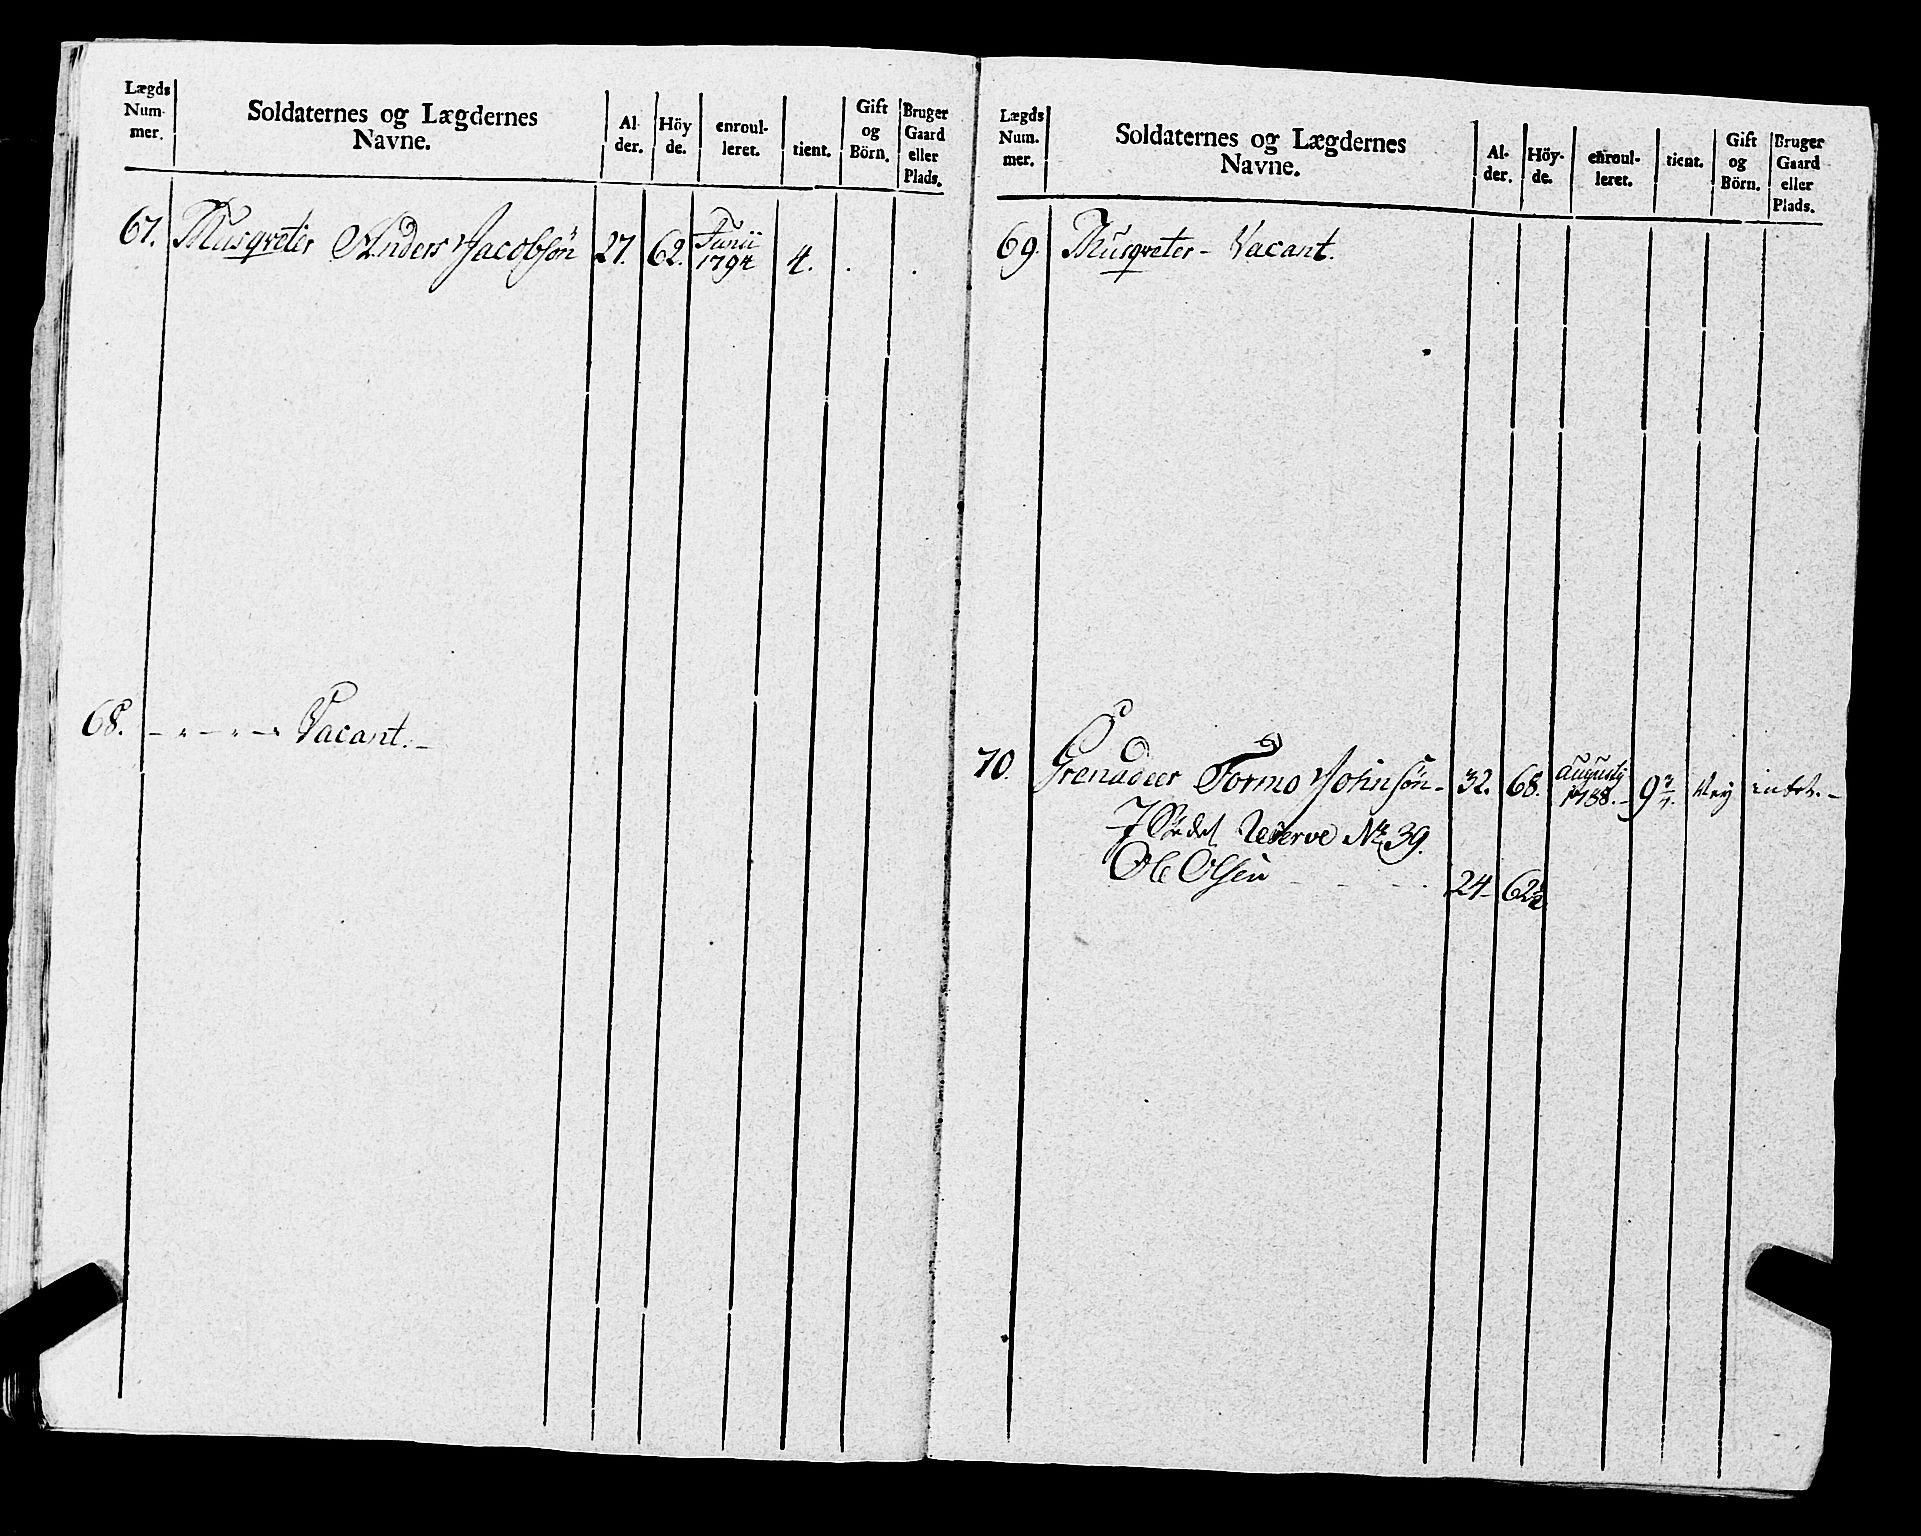 Lægds Num- mer.
Soldaternes og Lægdernes Navne.
Al- der.
Höy de.
enroul- leret.
tient.
Gift og Börn.
Bruger Gaard eller Plads.
67. Musqvetér Anders Jacobsøn 27. 62. Junii 1794 4. . .
68. - " - " - " Vacant. -
Lægds Num. mer.
Soldaternes og Lægdernes Navne.
Al- der.
Höy- de.
enroul- leret.
tient.
Gift og Börn.
Bruger Gaard eller Plads.
69. Musqveter - Vacant.
70. Grenadeer Tormo Johnsøn - 32. 68. Augustij 1788. - 9 3/4. Ney intet. -
reserve No 39.
Ole Olsen - - - 24 - 62½